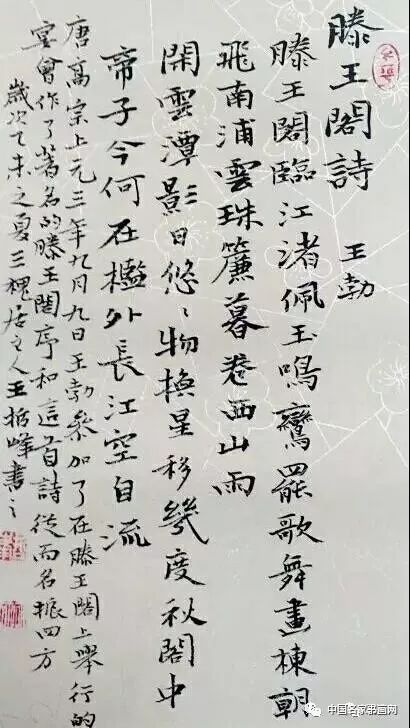 滕王閣詩 王勃
滕王閣臨江渚佩玉鳴鸞罷歌舞畫棟朝
飛南浦雲珠簾暮卷西山雨
閑雲潭影日悠〻物換星移幾度秋閣中
帝子今何在檻外長江空自流
唐高宗上元三年九月九日王勃參加了在滕王閣上舉行的
宴會作了著名的滕王閣序和這首詩從而名振四方
歲次乙未之夏三槐居主人王峰書之
中国名家书画网